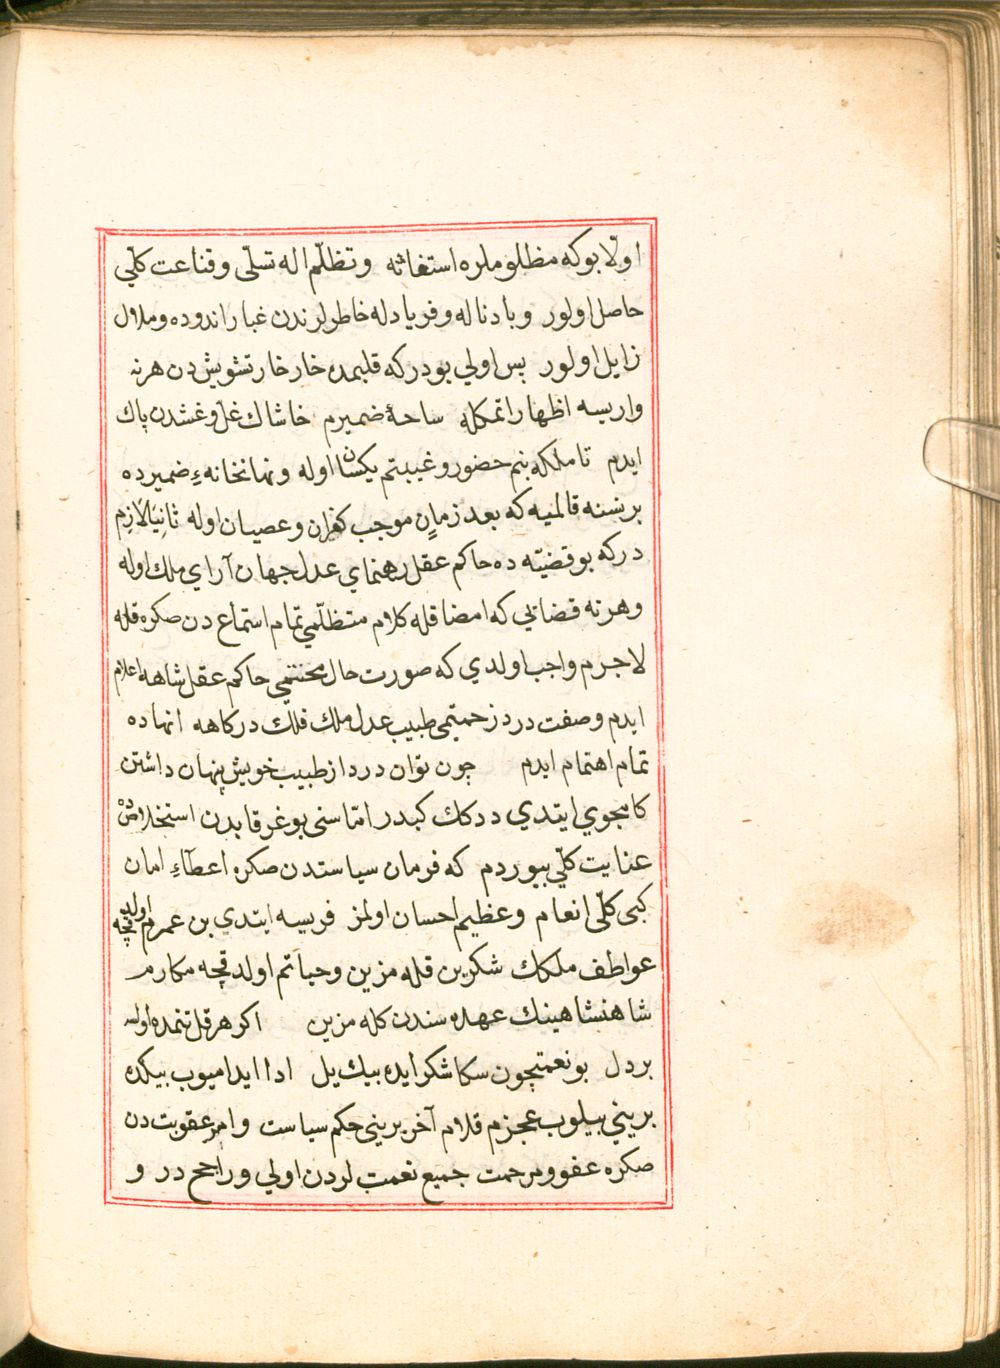 اوّلا بوكه مظلوملره استغاثه وتظلّم ايله تسلّى وقناعت كلّي
حاصل اولور وبادناله وفرياد له خاطرلرندن غبار اندوه وملال
زايل اولور پس اولي بودركه قلبمده خار خار تشويش دن هرنه
واريسه اظهار اتمكله ساحهٔ ضميرم خاشاك غلّ وغشدن پاك
ايدم تا ملكه بنم حضور وغيبتم يكسان اوله ونهانخانهٔ ضميرده
برنسنه قالميه كه بعد زمانٍ موجب كفران وعصيان اوله ثانيًا لازم
دركه بو قضيّه ده حاكم عقل رهنماي عدل جهان آراي ملك اوله
وهرنه قضايي كه امضا قله كلام متظلّمي تمام استماع دن صكره قله
لاجرم واجب اولدي كه صورت حال محنتمي حاكم عقل شاهه اعلام
ايدم وصفت درد زحمتمي طبيب عدل ملك فلك دركاهه انهاده
تمام اهتمام ايدم چون توان درد از طبيب خويش پنهان داشتن
كامجوي ايتدي ددكك كبدر امّا سنى بو غرقابدن استخلاص ده
عنايت كلّي بيوردم كه فرمان سياستدن صكره اعطآء امان
كبى كلّى انعام وعظيم احسان اولمز فريسه ايتدي بن عمرم اولدقجه
عواطف ملكك شكرين قله مزين وحياتم اولدقجه مكارم
شاهنشاهينك عهده سندن كله مزين اكر هر قل تنمده اولسه
بر دل بو نعمتچون سكا شكر ايده بيك يل ادا ايداميوب بيكده
بريني بيلوب عجزم قلام آخر بريني حكم سياست وامر عقوبت دن
صكره عفو ومرحمت جميع نعمت لردن اولي وراجح در و